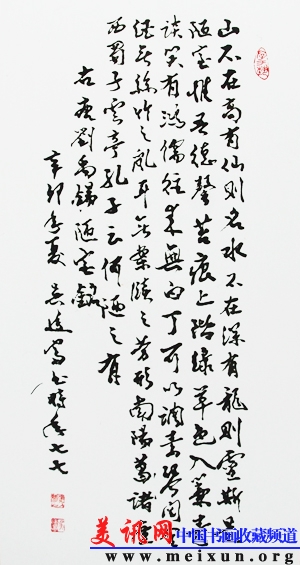 山不在高有仙则名水不在深有龍则靈斯是
陋室惟吾德馨苔痕上階绿草色入簾青
谈笑有鸿儒往来無白丁可以調素琴阅金
经無絲竹之乱耳無案牘之劳形南陽葛諸廬
西蜀子雲亭孔子云何陋之有
右唐劉禹錫陋室銘
辛卯季夏 書時年七七
美讯网
中国书画收藏频道
www.meixun.org